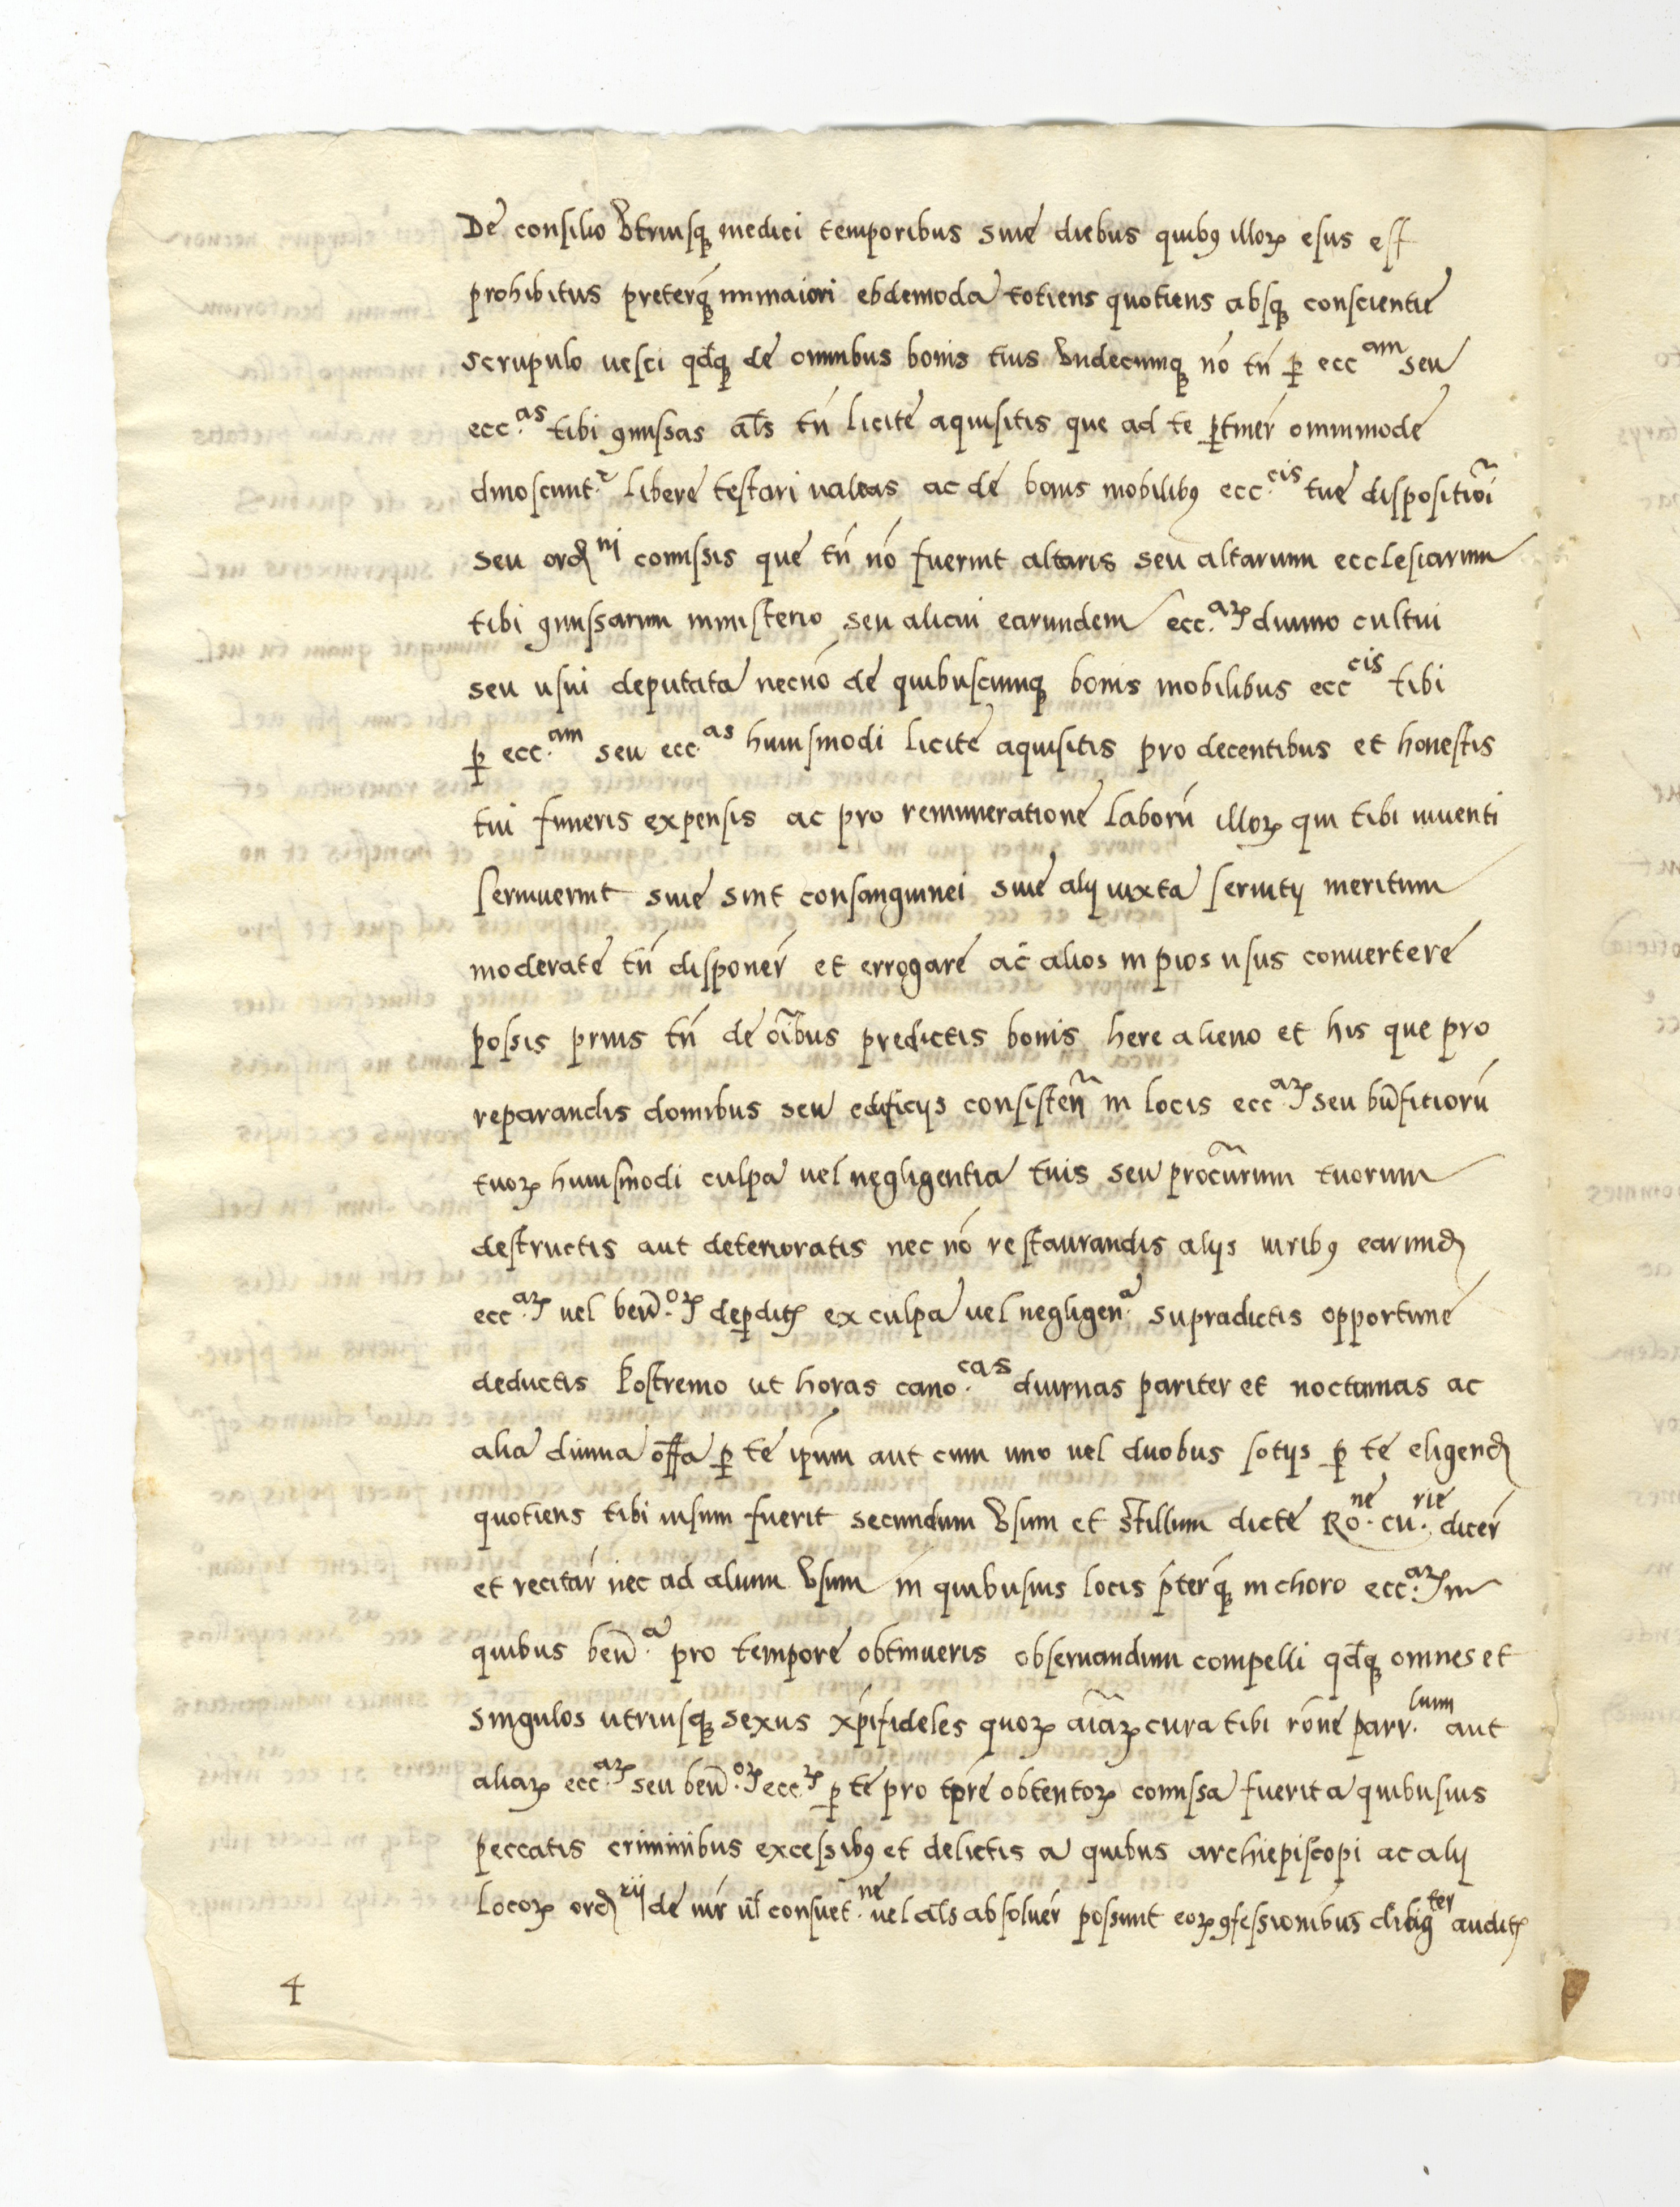 De consilio Vtriusq3 medici temporibus siue diebus quib9 illoꝝ esus est
prohibitus preterq̃3 inmaiori ebdemoda totiens quotiens absq3 conscientie
scrupulo uesci qđq3 de omnibus bonis tuis Vndecumq3 nō tñ ꝑ ecc.am seu
ecc.as tibi ꝯmissas al̃s tñ licite aquisitis que ad te ꝑtiner̃ omnimode
dinoscunt.r libere testari ualeas ac de bonis mobilib9 ecc.cis tue dispositiõi
seu ord̃nj comissis que tñ nō fuerint altaris seu altarium ecclesiarum
tibi ꝯmissarum ministerio seu alicui earundem ecc.aꝝ diuino cultui
seu usui deputata necnō de quibuscumq3 bonis mobilibus ecc.cis tibi
ꝑ ecc.am seu ecc.as huiusmodi licite aquisitis pro decentibus et honestis
tui funeris expensis ac pro remuneratione laborū illoꝝ qui tibi uiuenti
seruuerint siue sint consanguinei siue alij iuxta seruitij meritum
moderate tñ disponer̃ et errogare ac̃ alios in pios usus conuertere
possis prius tñ de oĩbus predictis bonis here alieno et his que pro
reparandis domibus seu edificijs consisteñ in locis ecc.aꝝ seu bñfitiorū
tuoꝝ huiusmodi culpa uel negligentia tuis seu procũrum tuorum
destructis aut deterioratis nec nō restaurandis alijs iurib9 earund̃
ecc.aꝝ uel beñ.oꝝ deꝑditꝭ ex culpa uel negligen.a supradictis opportune
deductis Postremo ut horas cano.cas diurnas pariter et nocturnas ac
alia diuina off̃a ꝑ te ipm̃ aut cum uno uel duobus sotijs ꝑ te eligend̃
quotiens tibi uisum fuerit secundum Vsum et st̃illum dicte Ro.ne cu.rie dicer̃
et recitar̃ nec ad alium Vsum in quibusuis locis p̃terq̃3 in choro ecc.aꝝ in
quibus beñ.a pro tempore obtinueris obseruandum compelli qđq3 omnes et
singulos utriusq3 sexus xp̃ifideles quoꝝ aĩaꝝ cura tibi rõne parr.lium aut
aliaꝝ ecc.aꝝ seu beñ.oꝝ ecc.ꝝ ꝑ te pro tp̃re obtentoꝝ comissa fuerit a quibusuis
peccatis criminibus excessib9 et delictis a quibus archiepiscopi ac alij
locoꝝ ord̃.rij de iur̃ ul̃ consuet.ne uel al̃s absoluer̃ possunt eoꝝ ꝯfessionibus dilig.ter auditꝭ
4